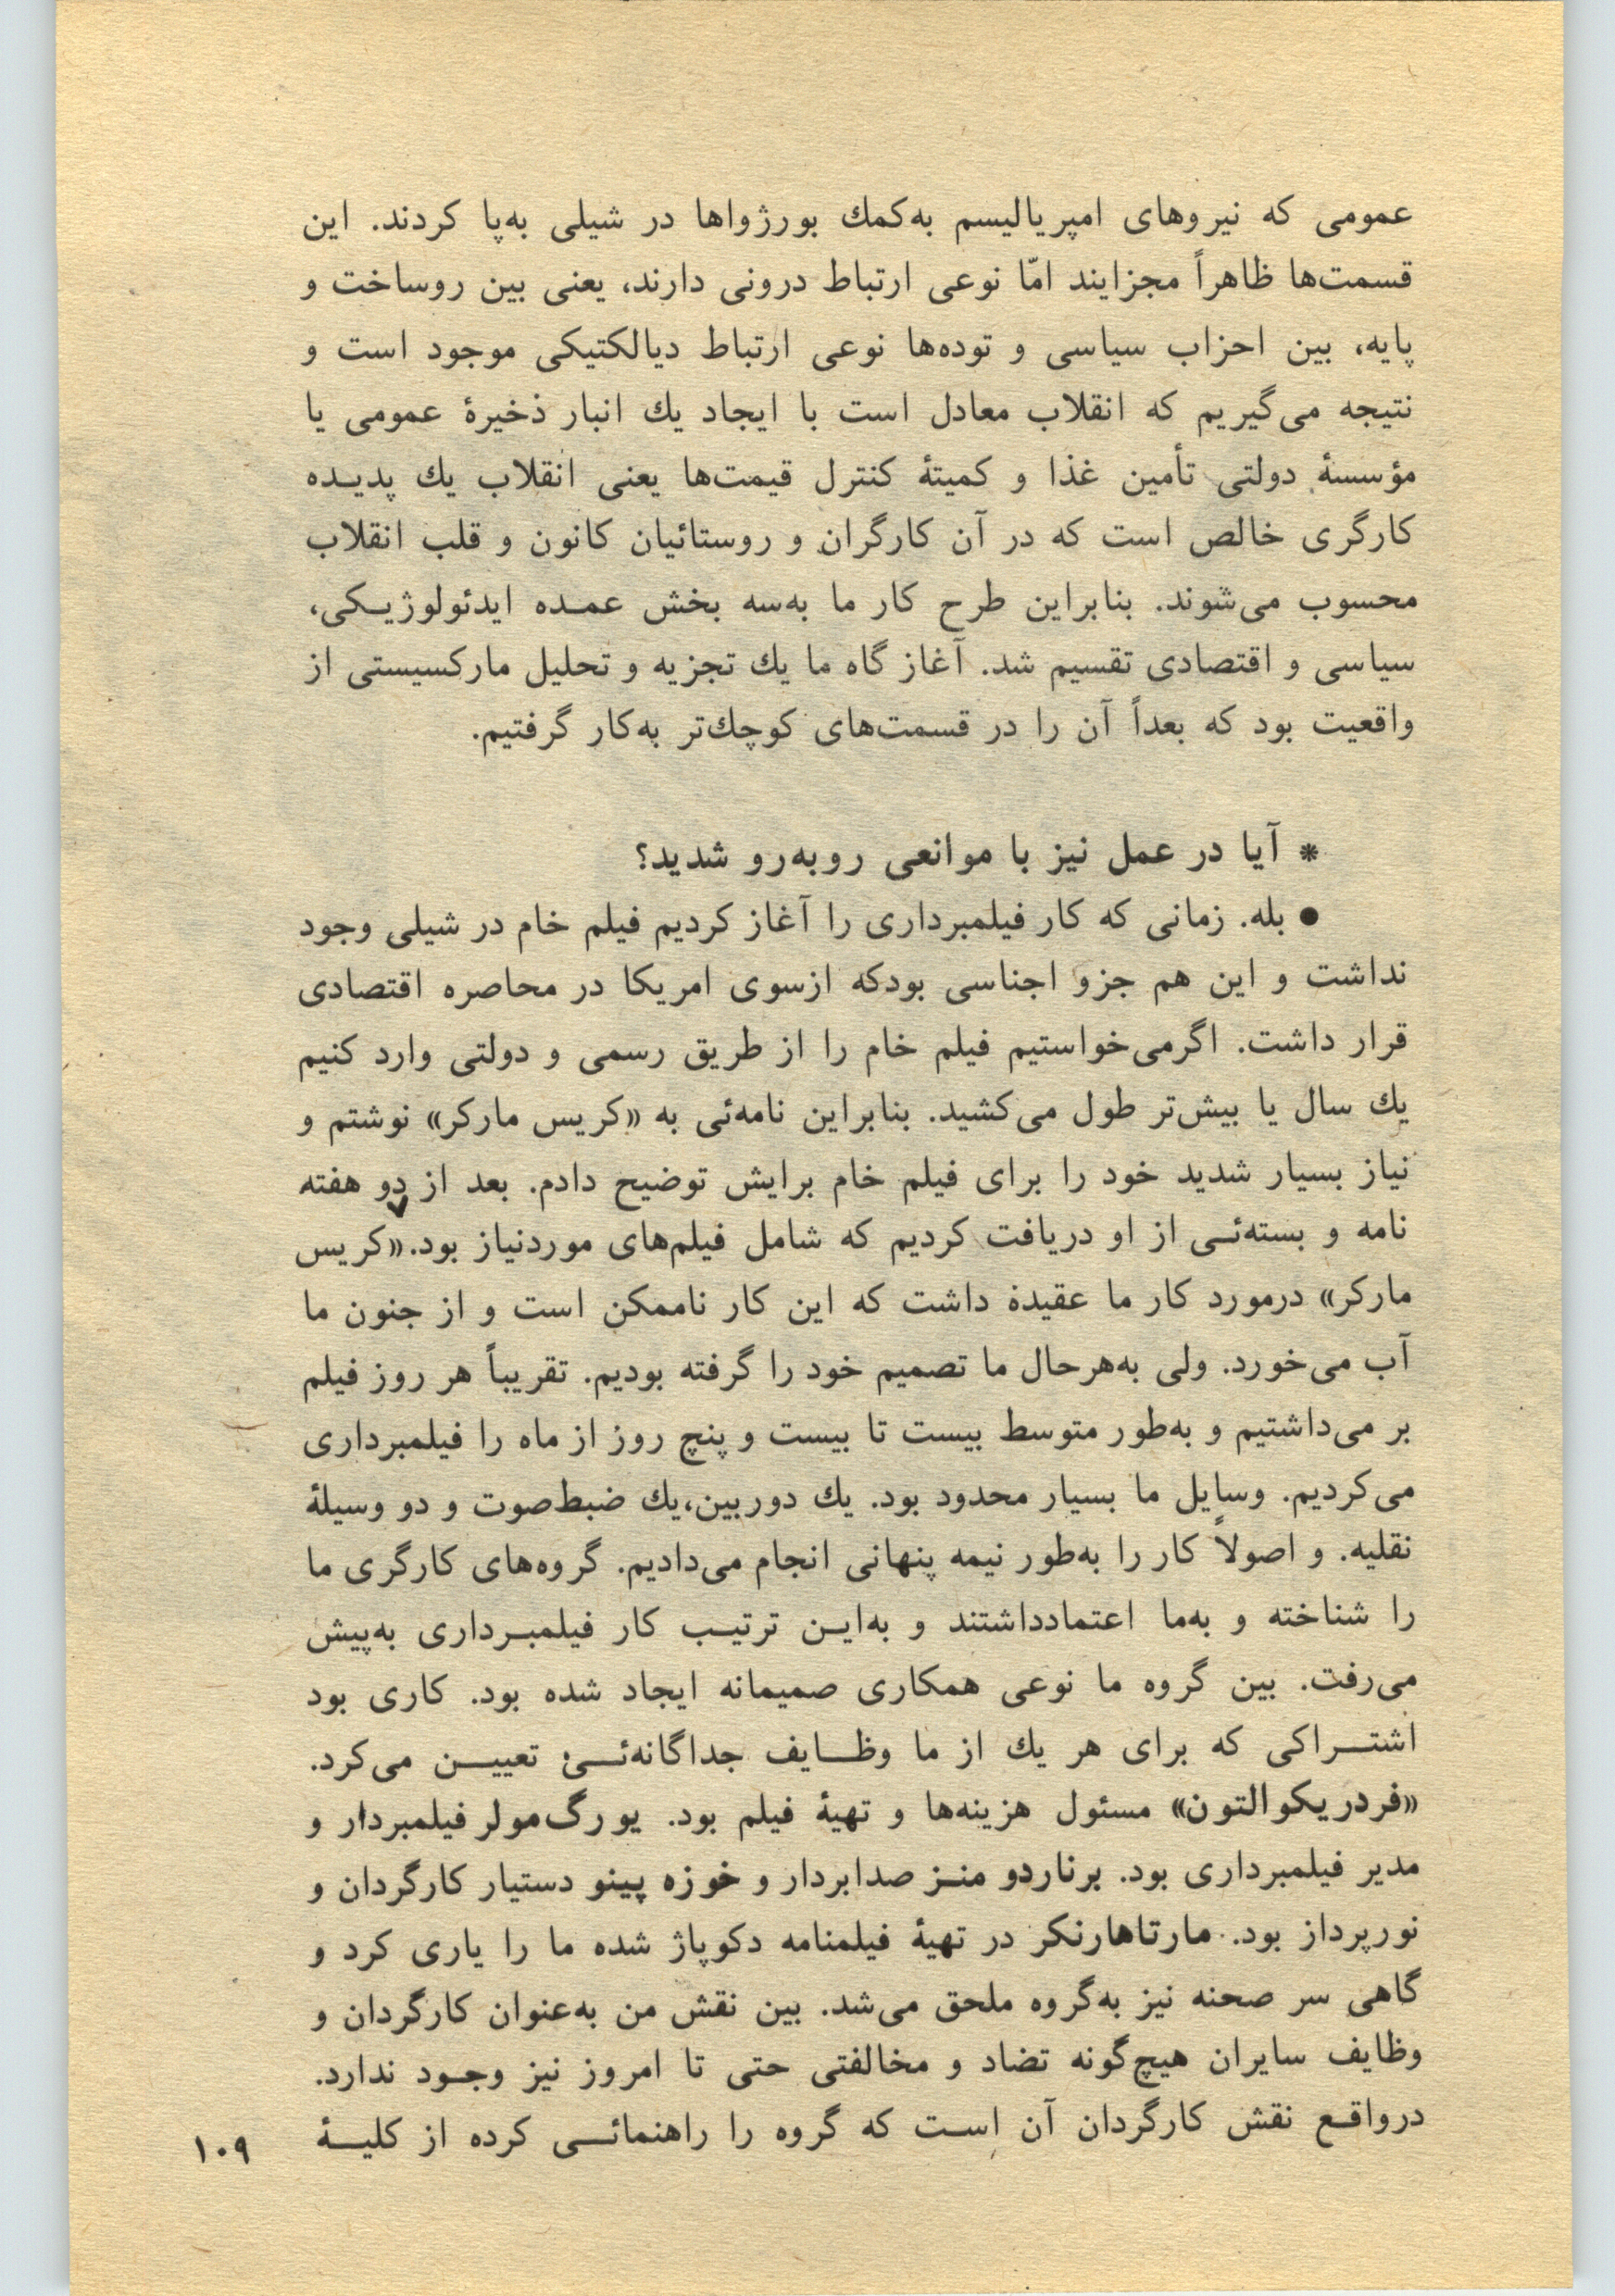 عمومی که نیروهای امپریالیسم به‌کمك بورژواها در شیلی به‌پا کردند. این
قسمت‌ها ظاهراً مجزایند امّا نوعی ارتباط درونی دارند، یعنی بین روساخت و
پایه، بین احزاب سیاسی و توده‌ها نوعی ارتباط دیالکتیکی موجود است و
نتیجه می‌گیریم که انقلاب معادل است با ایجاد یك انبار ذخیرۀ عمومی یا
مؤسسۀ دولتی تأمین غذا و کمیتۀ کنترل قیمت‌ها یعنی انقلاب یك پدیـده
کارگری خالص است که در آن کارگران و روستائیان کانون و قلب انقلاب
محسوب می‌شوند. بنابراین طرح کار ما به‌سه بخش عمـده ایدئولوژیـکی،
سیاسی و اقتصادی تقسیم شد. آغاز گاه ما یك تجزیه و تحلیل مارکسیستی از
واقعیت بود که بعداً آن را در قسمت‌های کوچك‌تر به‌کار گرفتیم.
* آیا در عمل نیز با موانعی روبه‌رو شدید؟
● بله. زمانی که کار فیلمبرداری را آغاز کردیم فیلم خام در شیلی وجود
نداشت و این هم جزو اجناسی بودکه ازسوی امریکا در محاصره اقتصادی
قرار داشت. اگرمی‌خواستیم فیلم خام را از طریق رسمی و دولتی وارد کنیم
یك سال یا بیش‌تر طول می‌کشید. بنابراین نامه‌ئی به «کریس مارکر» نوشتم و
نیاز بسیار شدید خود را برای فیلم خام برایش توضیح دادم. بعد از دو هفته
نامه و بسته‌ئـی از او دریافت کردیم که شامل فیلم‌های موردنیاز بود. «کریس
مارکر» درمورد کار ما عقیدۀ داشت که این کار ناممکن است و از جنون ما
آب می‌خورد. ولی به‌هرحال ما تصمیم خود را گرفته بودیم. تقریباً هر روز فیلم
بر می‌داشتیم و به‌طور متوسط بیست تا بیست و پنچ روز از ماه را فیلمبرداری
می‌کردیم. وسایل ما بسیار محدود بود. یك دوربین،یك ضبط‌صوت و دو وسیلۀ
نقلیه. و اصولاً کار را به‌طور نیمه پنهانی انجام می‌دادیم. گروه‌های کارگری ما
را شناخته و به‌ما اعتمادداشتند و به‌ایـن ترتیـب کار فیلمبـرداری به‌پیش
می‌رفت. بین گروه ما نوعی همکاری صمیمانه ایجاد شده بود. کاری بود
اشتـــراکی که برای هر یك از ما وظــایف جداگانه‌ئــی تعییــن می‌کرد.
«فردریکوالتون» مسئول هزینه‌ها و تهیۀ فیلم بود. یورگ‌مولر فیلمبردار و
مدیر فیلمبرداری بود. برناردو منـز صدابردار و خوزه پینو دستیار کارگردان و
نورپرداز بود. مارتاهارنکر در تهیۀ فیلمنامه دکوپاژ شده ما را یاری کرد و
گاهی سر صحنه نیز به‌گروه ملحق می‌شد. بین نقش من به‌عنوان کارگردان و
وظایف سایران هیچ‌گونه تضاد و مخالفتی حتی تا امروز نیز وجـود ندارد.
درواقـع نقش کارگردان آن اسـت که گروه را راهنمائــی کرده از کلیــۀ
۱۰۹